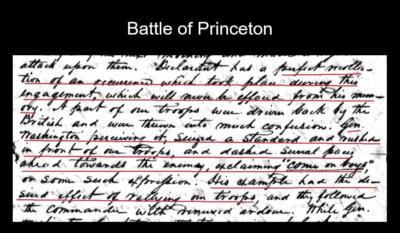 Battle of Princeton
attack upon them. Declarant has a perfect recollec-
tion of an occurrence which took place during this
engagement, which will never be effaced from his mem-
ory. A part of our troops were driven back by the
British and were thrown into much confusion. Gen
Washington perceiving it, seized a Standard and rushed
in front of our troops and dashed several paces
ahead towards the enemy, exclaiming "come on boys"
or some such expression. His example had the de-
sired effect of rallying our troops, and they followed
the Commander with renewed ardour. While Gen.